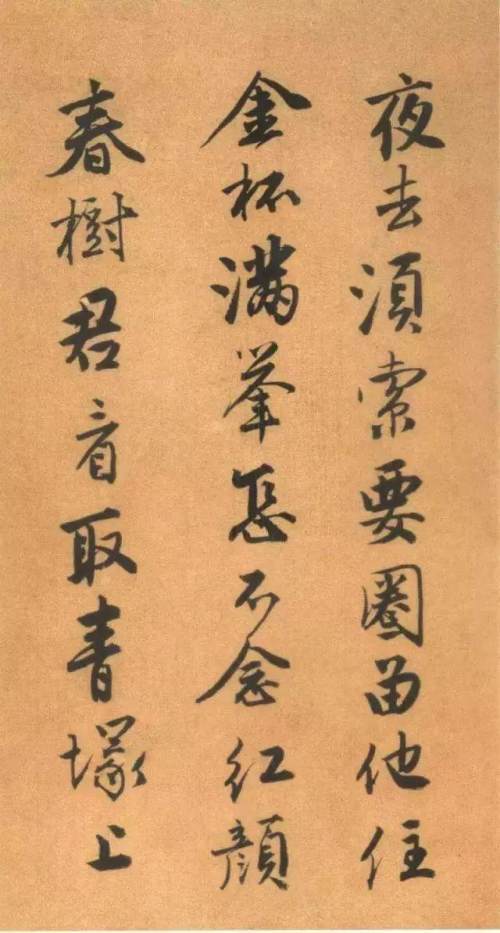 夜去須索要圈留他住
金杯滿舉怎不念紅顔
春樹君看取青塚上